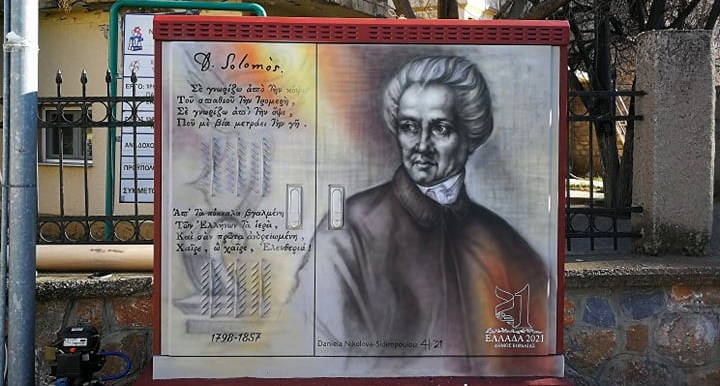 D. Solomòs.
Σὲ γνωρίζω ἀπὸ τὴν κόψι
Τοῦ σπαθιοῦ τὴν τρομερὴ,
Σὲ γνωρίζω ἀπὸ τὴν ὄψι,
Ποῦ μὲ βία μετράει τὴν γῆ.
Ἀπ' τὰ κόκκαλα βγαλμένη
Τῶν Ἑλλήνων τὰ ἱερὰ,
Καὶ σὰν πρῶτα ἀνδρειωμένη,
Χαῖρε, ὦ χαῖρε, Ἐλευθεριά!
1798-1857
Daniela Nikolova-Sidiropoulou 4/21
21
ΕΛΛΑΔΑ 2021
ΕΡΓΟ:
ΑΝΑΔΟΧΟ
ΠΡΟΥΠΟΛ
ΣΥΜΜΕΤΟ